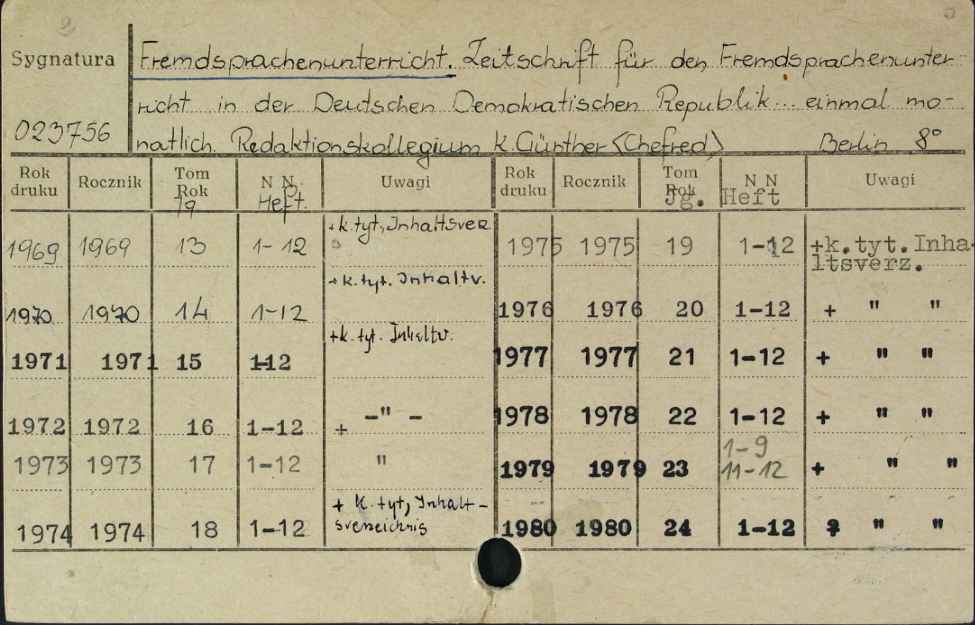 2
Sygnatura
Fremdsprachenunterricht. Zeitschrift für den Fremdsprachenunter-
richt in der Deutschen Demokratischen Republik... einmal mo-
023756
natlich. Redaktionskollegium K. Günther (Chefred) Berlin 8°
Rok druku Rocznik Tom Rok Jg N N. Heft. Uwagi Rok druku Rocznik Tom Rok Jg. N N Heft Uwagi
1969 1969 13 1-12 +k.tyt, Inhaltsver 1975 1975 19 1-12 +k.tyt.Inha-
ltsverz.
1970 1970 14 1-12 +k.tyt. Inhaltv. 1976 1976 20 1-12 + " "
1971 1971 15 1-12 +k.tyt. Inhaltv. 1977 1977 21 1-12 + " "
1972 1972 16 1-12 + -"- 1978 1978 22 1-12 + " "
1973 1973 17 1-12 " 1979 1979 23 1-9 11-12 + " "
1974 1974 18 1-12 + K.tyt, Inhalt-
sverzeichnis 1980 1980 24 1-12 " "